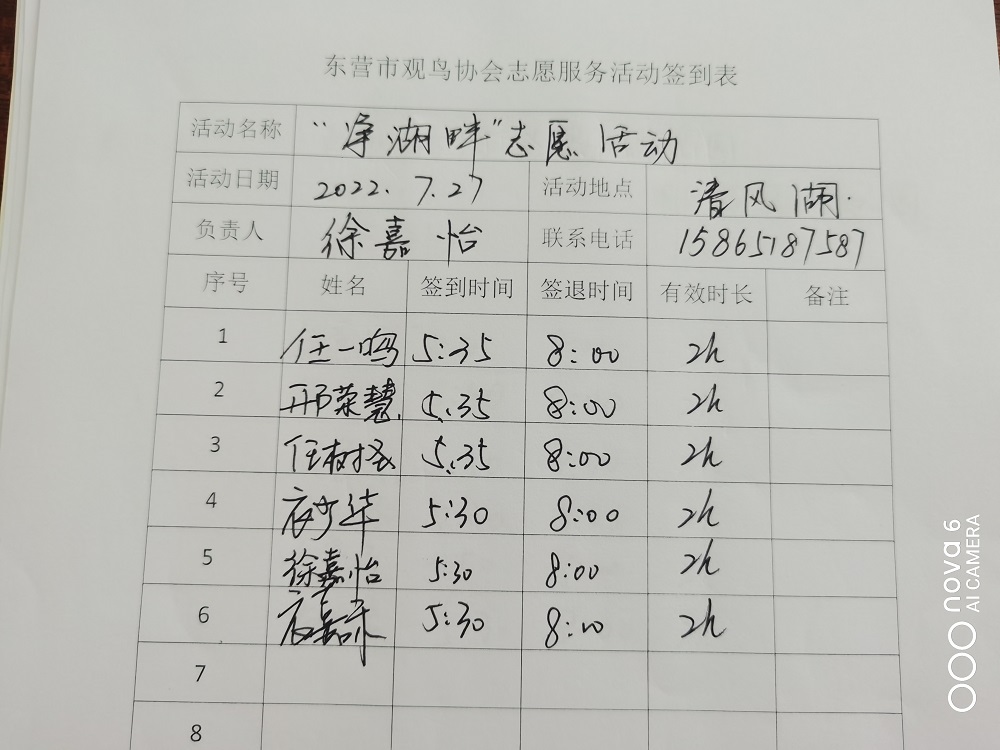 东营市观鸟协会志愿服务活动签到表
活动名称 “净湖畔”志愿活动
活动日期 2022.7.27 活动地点 清风湖.
负责人 徐嘉怡 联系电话 15865187587
序号 姓名 签到时间 签退时间 有效时长 备注
1 任一鸣 5:35 8:00 2h
2 邢荣慧 5:35 8:00 2h
3 任树 5:35 8:00 2h
4 衣少华 5:30 8:00 2h
5 徐嘉怡 5:30 8:00 2h
6 衣嘉 5:30 8:00 2h
7
8
nova 6
AI CAMERA